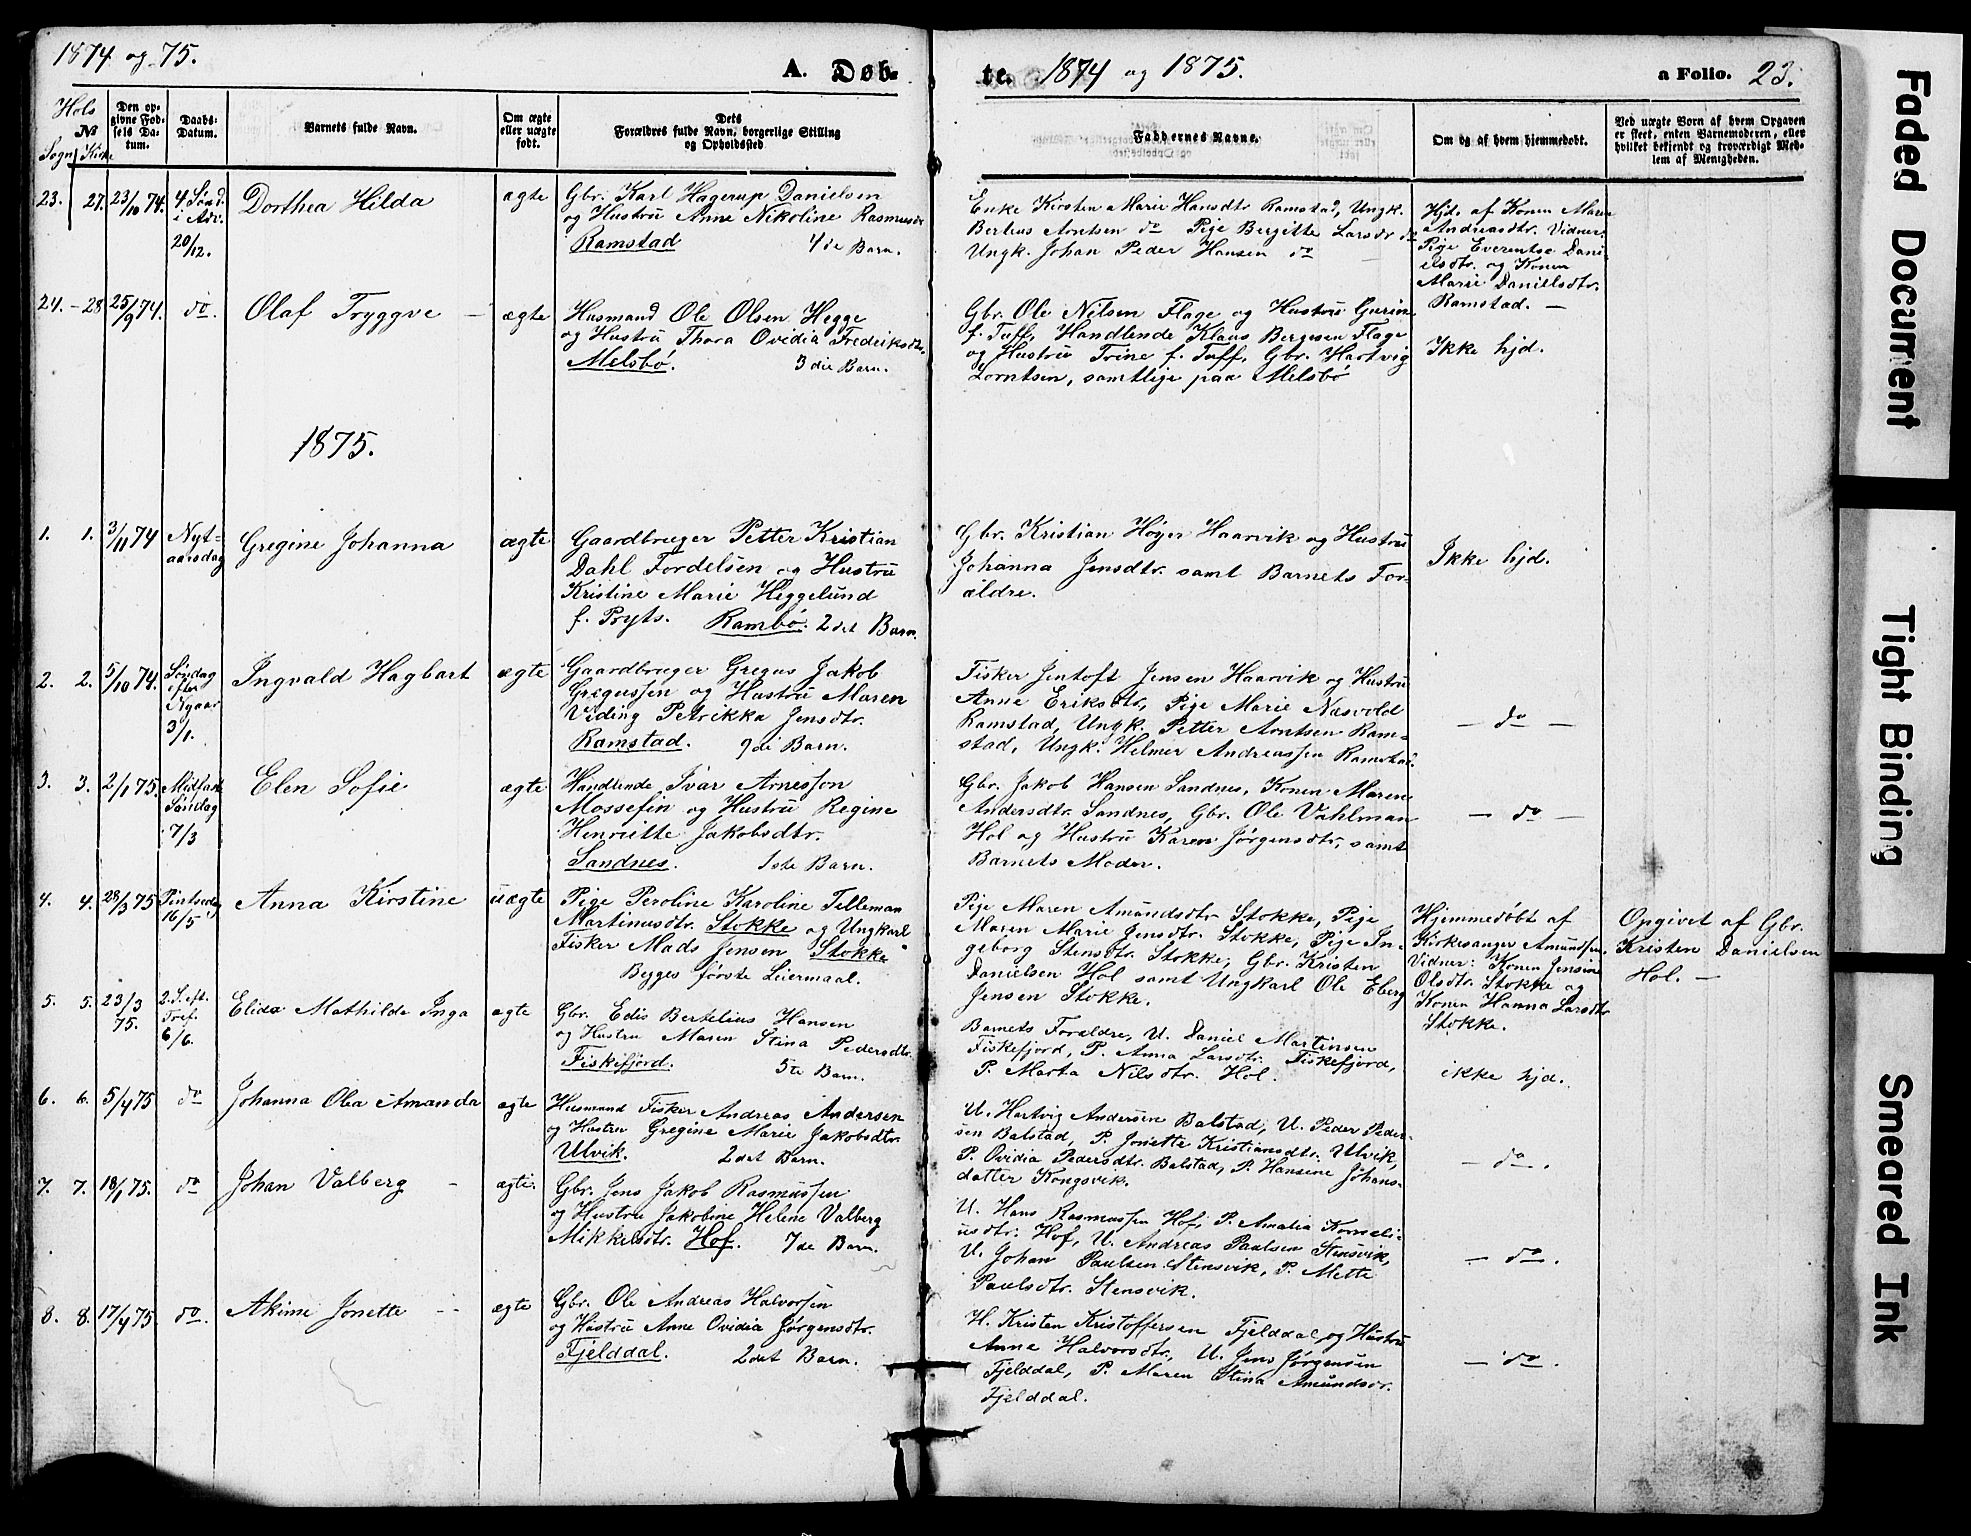 1874 og 75.
A. Døb-
te. 1874 og 1875.
a Folio. 23.
Hols
No
Sogn Kirke
Den op-
givne Fød-
sels Da-
tum.
Daabs-
Datum.
Barnets fulde Navn.
Om ægte
eller uægte
født.
Dets
Forældres fulde Navn, borgerlige Stilling
og Opholdssted.
Faddernes Navne.
Om og af hvem hjemmedøbt.
Ved uægte Børn af hvem Opgaven
er skeet, enten Barnemoderen, eller
hvilket bekjendt og troværdigt Med-
lem af Menigheden.
23. 27. 23/10 74. 4 Sønd.
i Adv.
20/12.
Dorthea Hilda
ægte
Gbr. Karl Hagerup Danielsen
og Hustru Anne Nikoline Rasmusdr
Ramstad 4de Barn.
Enke Kirsten Marie Hansdtr Ramstad, Ungk.
Berteus Arntsen do Pige Bergitte Larsdr do
Ungk. Johan Peder Hansen do
Hjd. af Konen Maren
Andreasdtr. Vidner:
Pige Everentse Dani-
elsdtr. og Konen
Marie Danielsdtr.
Ramstad. —
24. - 28 25/9 74. do. Olaf Tryggve —
ægte
Husmand Ole Olsen Hegge
og Hustru Thora Ovidia Fredriksdtr.
Melsbø. 3die Barn.
Gbr. Ole Nilsen Flage og Hustru Gurine
f. Tuff, Handlende Klaus Bergesen Flage
og Hustru Trine f. Tuff, Gbr. Hartvig
Lorntsen, samtlige paa Melsbø
Ikke hjd.
1875.
1. 1. 3/11 74 Nyt-
aarsdag
Gregine Johanna
ægte
Gaardbruger Petter Kristian
Dahl Fordelsen og Hustru
Kristine Marie Heggelund
f. Pryts. Rambø. 2det Barn.
Gbr. Kristian Høyer Haarvik og Hustru
Johanna Jensdtr. samt Barnets For-
ældre.
Ikke hjd.
2. 2. 5/10 74. Søndag
efter
Nyaar
3/1.
Ingvald Hagbart
ægte
Gaardbruger Gregus Jakob
Gregussen og Hustru Maren
Viding Petrikka Jensdtr.
Ramstad. 9de Barn.
Fisker Jentoft Jensen Haarvik og Hustru
Anne Eriksdtr, Pige Marie Nasvold
Ramstad, Ungk. Petter Arntsen Ram-
stad, Ungk. Helmer Andreassen Ramstad.
— do —
3. 3. 2/1 75. Midfaste
Søndag
7/3
Elen Sofie
ægte
Handlende Ivar Arnesson
Mossefin og Hustru Regine
Henriette Jakobsdtr.
Sandnes. 1ste Barn.
Gbr. Jakob Hansen Sandnes, Konen Maren
Andersdtr. Sandnes, Gbr. Ole Vahlman
Hol og Hustru Karen Jørgensdtr, samt
Barnets Moder.
— do —
4. 4. 28/3 75 Pintsedag
16/5
Anna Kirstine
uægte
Pige Peroline Karoline Telleman
Martinusdtr. Stokke og Ungkarl
Fisker Mads Jensen Stokke
Begges første Leiermaal.
Pige Maren Amundsdtr Stokke, Pige
Maren Marie Jensdtr. Stokke, Pige In-
geborg Stensdtr. Stokke, Gbr. Kristen
Danielsen Hol samt Ungkarl Ole Eberg
Jensen Stokke.
Hjemmedøbt af
Kirkesanger Amundsen,
Vidner: Konen Jensine
Olsdtr. Stokke og
Konen Hanna Larsdtr
Stokke.
Opgivet af Gbr.
Kristen Danielsen
Hol. —
5. 5. 23/3
75. 2. S. eft.
Tref.
6/6.
Elida Mathilde Inga
ægte
Gbr. Edis Bertelius Hansen
og Hustru Maren Stina Pedersdtr.
Fiskefjord. 5te Barn.
Barnets Forældre, U. Daniel Martinsen
Fiskefjord, P. Anna Larsdtr. Fiskefjord,
P. Marta Nilsdtr. Hol.
ikke hjd.
6. 6. 5/4 75 do Johanna Olea Amanda
ægte
Husmand Fisker Andreas Andersen
og Hustru Gregine Marie Jakobsdtr.
Ulvik. 2det Barn.
U. Hartvig Andersen Balstad, U. Peder Peder-
sen Balstad, P. Jonette Kristiansdtr. Ulvik,
P. Ovidia Pedersdtr. Balstad, P. Hansine Johans-
datter Kongsvik.
— do.
7. 7. 18/1 75. do Johan Valberg —
ægte.
Gbr. Jens Jakob Rasmussen
og Hustru Jakobine Helene Valberg
Mikkelsdtr. Hof. 7de Barn.
U. Hans Rasmussen Hof, P. Amalia Korneli-
usdtr. Hof, U. Andreas Paulsen Stensvik,
U. Johan Paulsen Stensvik, P. Mette
Paulsdtr. Stensvik.
— do.
8. 8. 17/4 75 do. Akime Jonette
ægte
Gbr. Ole Andreas Halvorsen
og Hustru Anne Ovidia Jørgensdtr.
Fjelddal. 2det Barn.
H. Kristen Kristoffersen Fjelddal, og Hustru
Anne Halvorsdtr, U. Jens Jørgensen
Fjelddal, P. Maren Stina Amundsdr.
Fjelddal.
— do.
Faded Document
Tight Binding
Smeared Ink